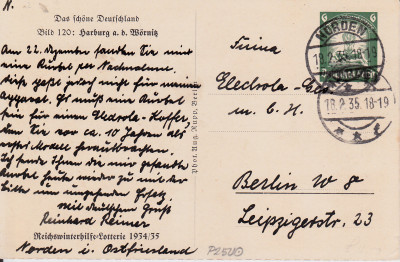 N.
Das schöne Deutschland
Bild 120: Harburg a. d. Wörnitz
Am 22. Dezember sandten Sie mir
eine Kurbel per Nachnahme.
Diese paßt jedoch nicht für meinen
Apparat. Es muß eine Kurbel
sein für einen Electrola-Koffer
den Sie vor ca. 10 Jahren als
erstes Modell herausbrachten.
Ich sende Ihnen die mir gesandte
Kurbel heute wieder zu mit der
Bitte um umgehenden Ersatz.
Mit deutschem Gruß
Reinhard Reimer
Reichswinterhilfe-Lotterie 1934/35
Norden i. Ostfriesland
Phot. Aug. Rupp, Berlin
NORDEN
18.2.35.18-19
6
18.2.35.18-19
Firma
Electrola-Ges
m. b. H.
Berlin W 8
Leipzigerstr. 23